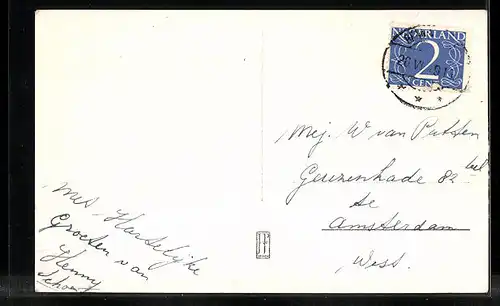 NEDERLAND
2
CENT
Mej. W van Putten
Geuzenkade 82
te
Amsterdam
West.
Met Hartelijke
Groeten van
Henny